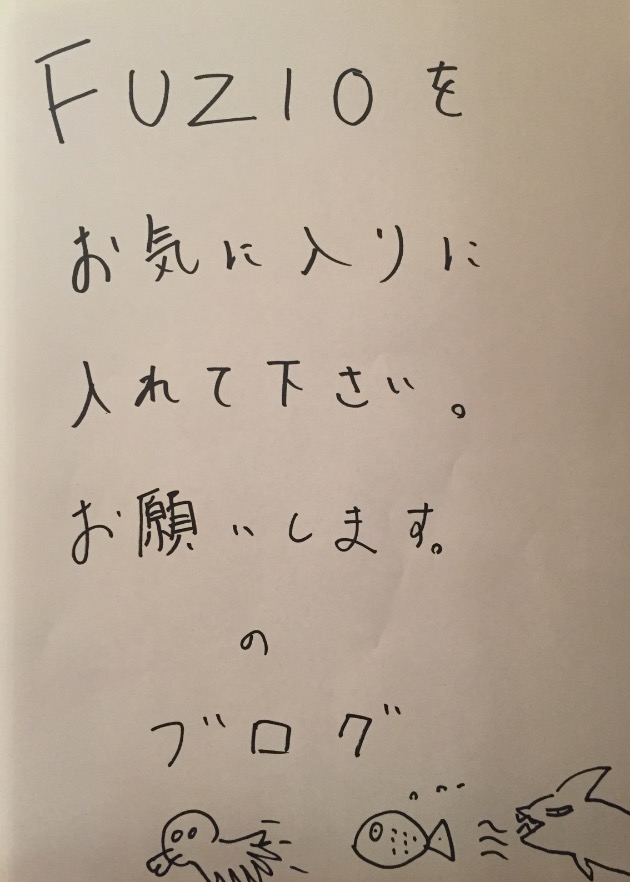 FUZIOを
お気に入りに
入れて下さい。
お願いします。
の
ブログ